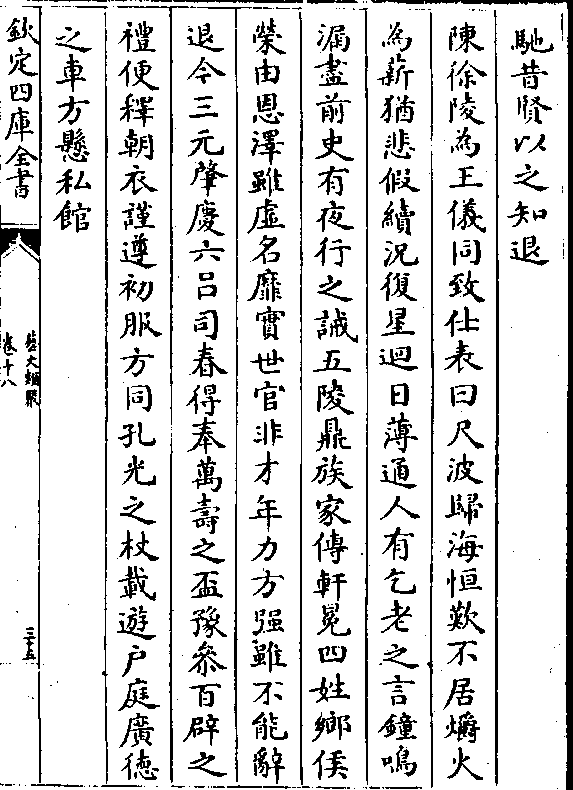 馳昔賢以之知退
陳徐陵為王儀同致仕表曰尺波歸海恒歎不居爝火
為薪猶悲假續況復星迴日薄通人有乞老之言鐘鳴
漏盡前史有夜行之誡五陵鼎族家傳軒冕四姓鄉侯
榮由恩澤雖虛名靡實世官非才年力方強雖不能辭
退今三元肇慶六呂司春得奉萬壽之盃豫叅百辟之
禮便釋朝衣謹遵初服方同孔光之杖載遊户庭廣徳
之車方懸私館
欽定四庫全書
藝文類聚
卷十八
三十五